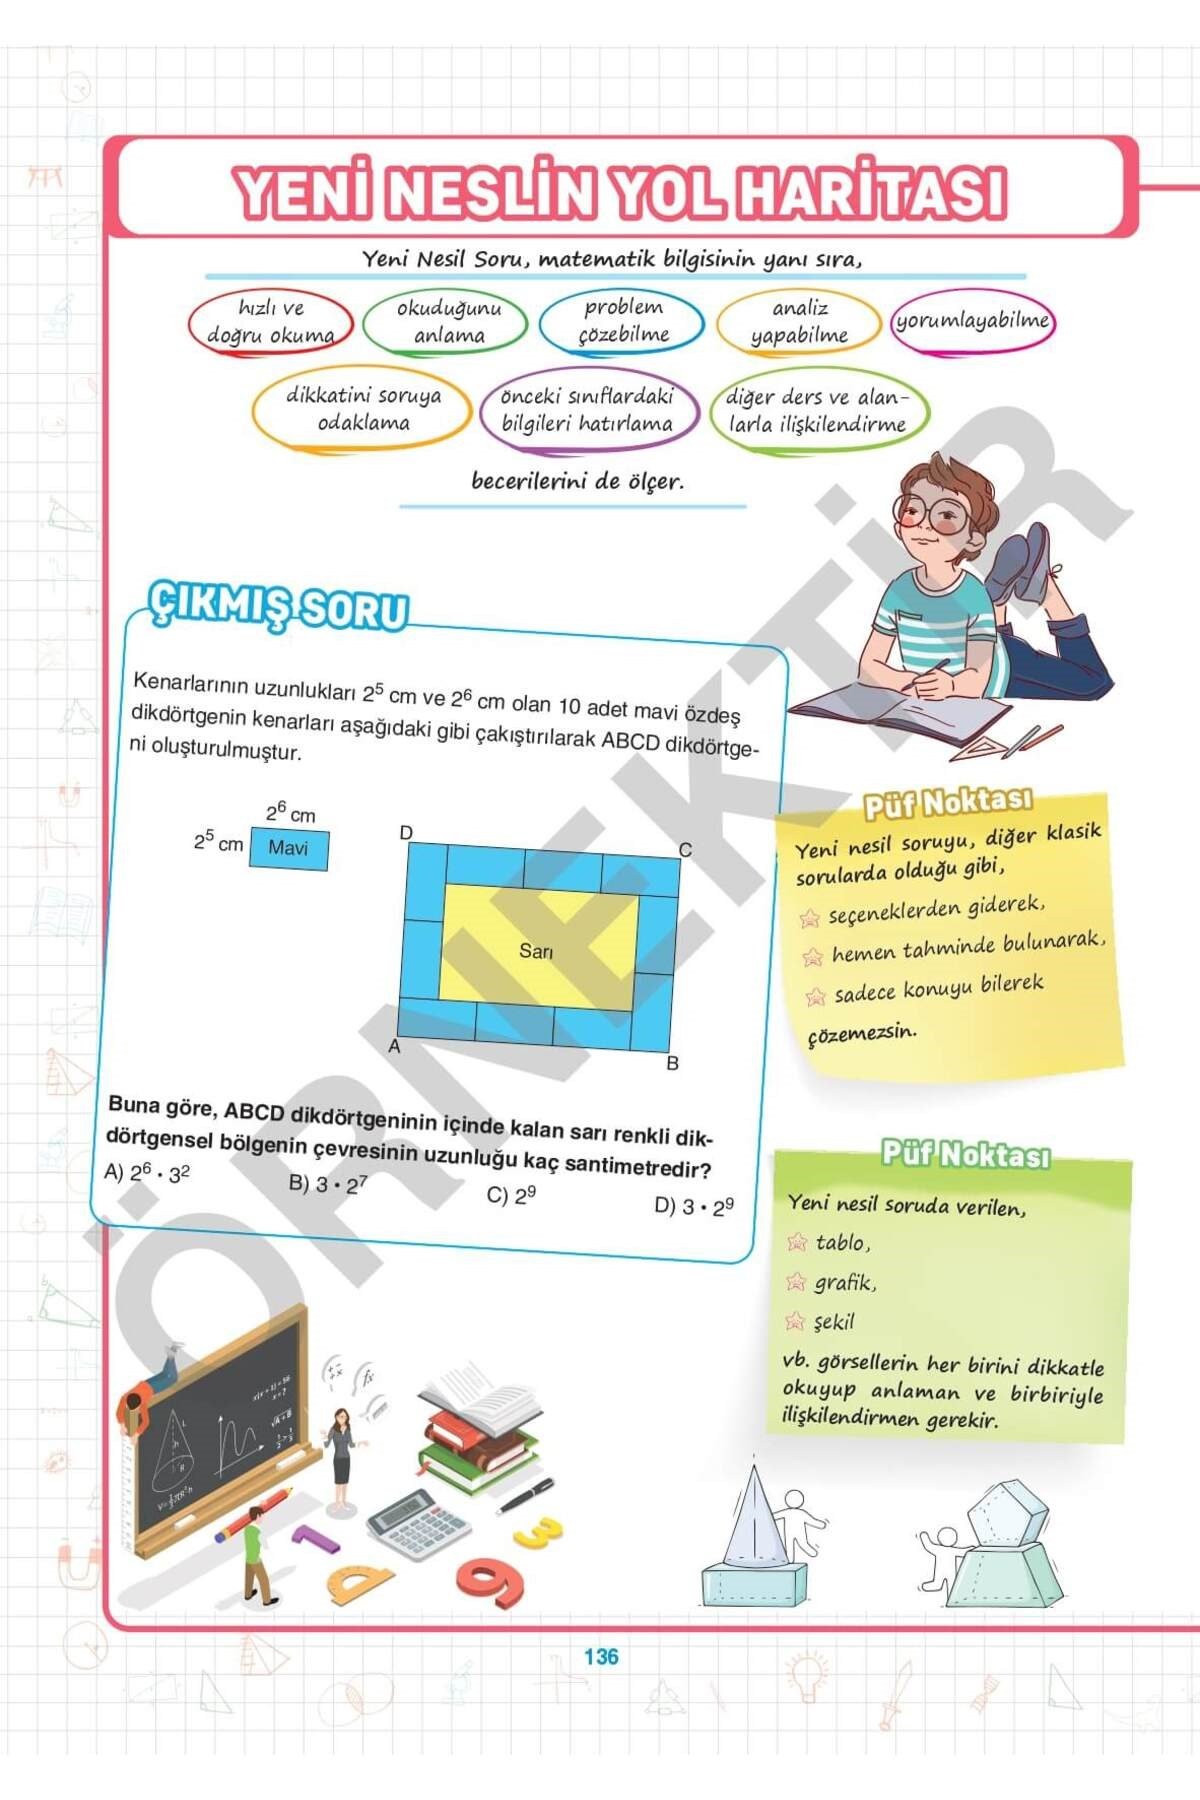 YENİ NESLİN YOL HARİTASI
Yeni Nesil Soru, matematik bilgisinin yanı sıra,
hızlı ve
doğru okuma
okuduğunu
anlama
problem
çözebilme
analiz
yapabilme
yorumlayabilme
dikkatini soruya
odaklama
önceki sınıflardaki
bilgileri hatırlama
diğer ders ve alan-
larla ilişkilendirme
becerilerini de ölçer.
ÇIKMIŞ SORU
Kenarlarının uzunlukları 2⁵ cm ve 2⁶ cm olan 10 adet mavi özdeş
dikdörtgenin kenarları aşağıdaki gibi çakıştırılarak ABCD dikdörtge-
ni oluşturulmuştur.
2⁶ cm
2⁵ cm
Mavi
D
C
Sarı
A
B
Buna göre, ABCD dikdörtgeninin içinde kalan sarı renkli dik-
dörtgensel bölgenin çevresinin uzunluğu kaç santimetredir?
A) 2⁶ · 3²
B) 3 · 2⁷
C) 2⁹
D) 3 · 2⁹
Püf Noktası
Yeni nesil soruyu, diğer klasik
sorularda olduğu gibi,
seçeneklerden giderek,
hemen tahminde bulunarak,
sadece konuyu bilerek
çözemezsin.
Püf Noktası
Yeni nesil soruda verilen,
tablo,
grafik,
şekil
vb. görsellerin her birini dikkatle
okuyup anlaman ve birbiriyle
ilişkilendirmen gerekir.
ÖRNEKTİR
136